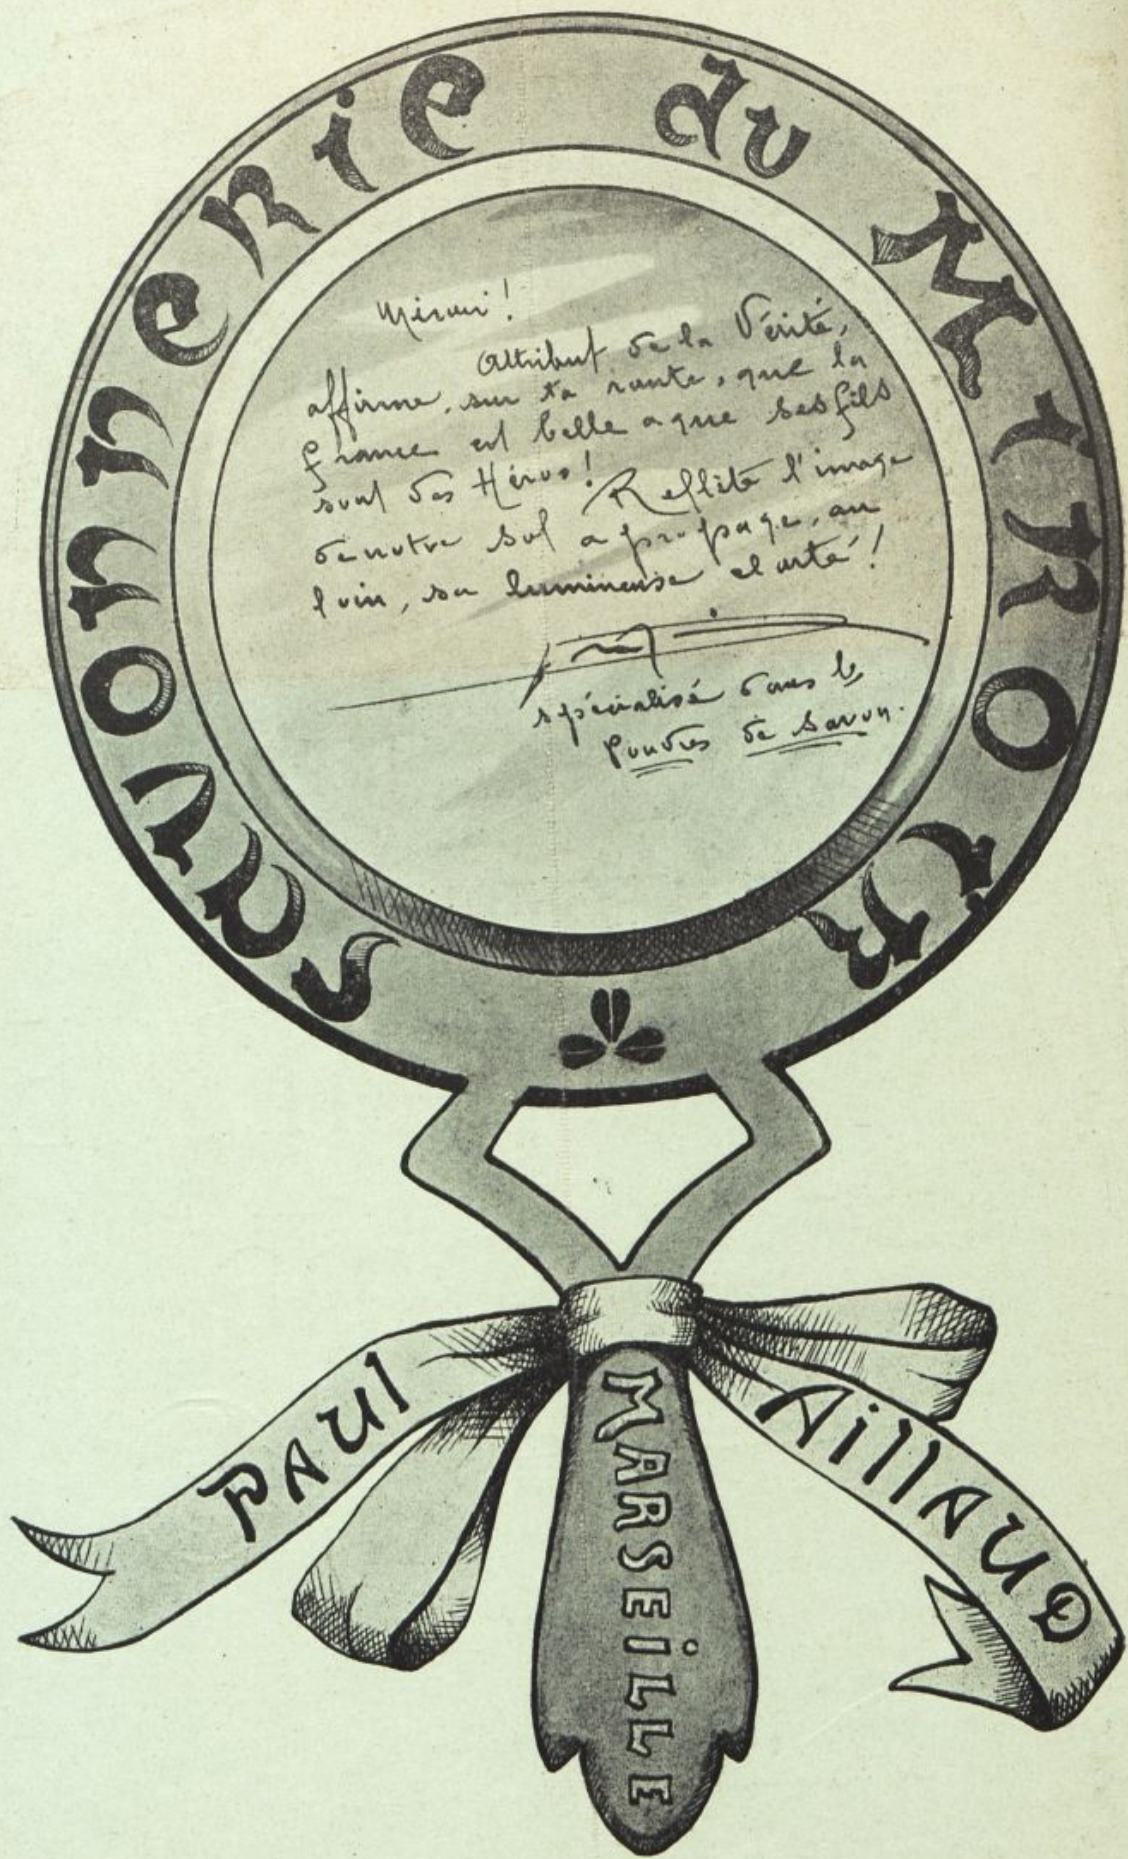 SAVONNERIE du MIROIR
Miroir!
Attribut de la Vérité,
affirme, sur ta route, que la
france est belle & que ses fils
sont des Héros! Reflète l'image
de notre sol & propage, au
loin, sa lumineuse clarté!
spécialisé dans les
Poudres de Savon.
PAUL AillAUD
MARSEiLLE